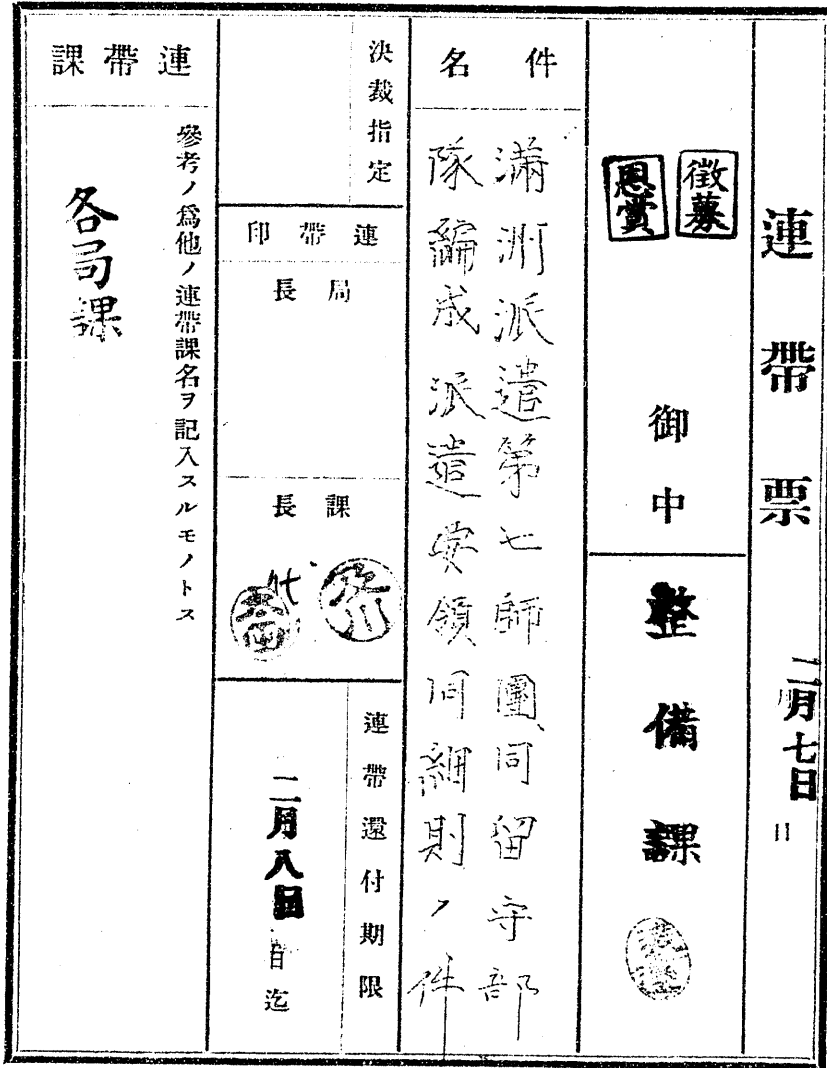 連帶票
二月七日
日
徵募
恩賞
御中
整備課
件名
滿洲派遣第七師團、同留守部
隊編成派遣要領同細則ノ件
決裁指定
連帶印
局長
課長
代
連帶還付期限
二月八日
日迄
連帶課
參考ノ爲他ノ連帶課名ヲ記入スルモノトス
各局課